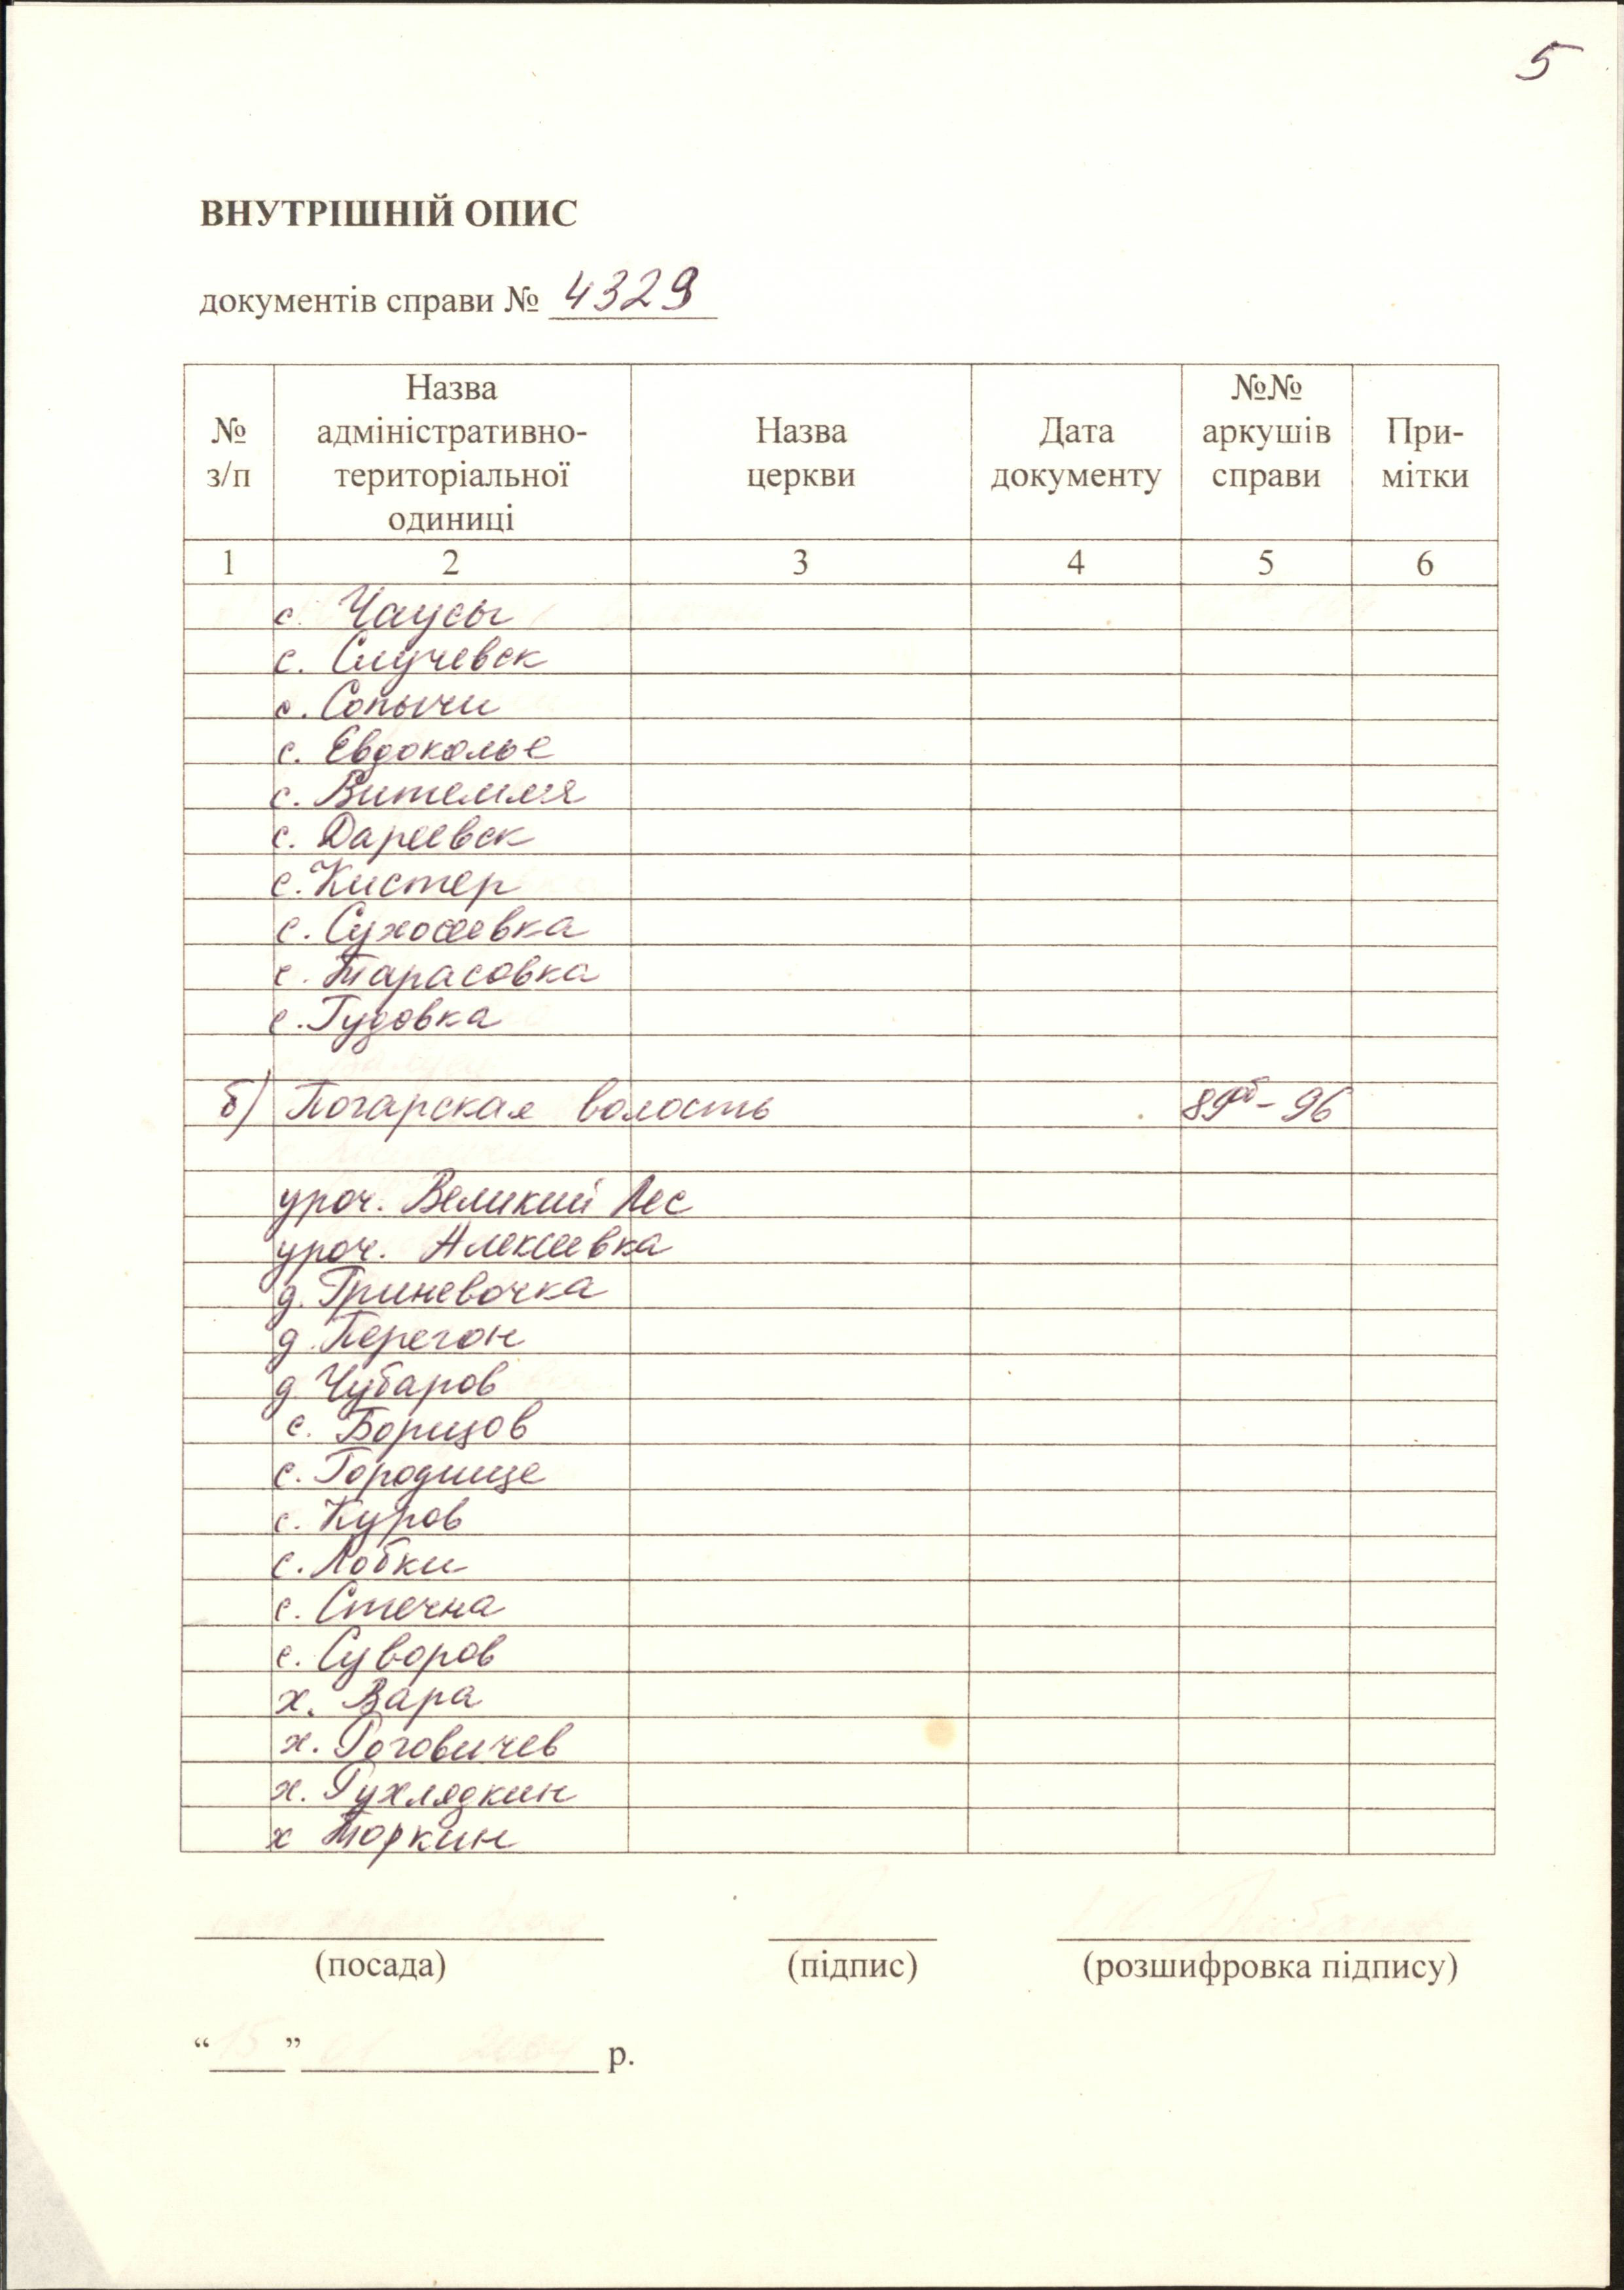 5
ВНУТРІШНІЙ ОПИС
документів справи № 4329
№ з/п
Назва адміністративно-територіальної одиниці
Назва церкви
Дата документу
№№ аркушів справи
При-мітки
1 2 3 4 5 6
с. Чаусы
с. Случевск
с. Сопычи
с. Евдоколье
с. Витемля
с. Дареевск
с. Кистер
с. Суходеевка
с. Тарасовка
с. Гудовка
б) Погарская волость 89об - 96
уроч. Великий Лес
уроч. Алексеевка
д. Гриневочка
д. Перегон
д. Чубаров
с. Борщов
с. Городище
с. Куров
с. Лобки
с. Стечна
с. Суворов
х. Вара
х. Роговичев
х. Рухлядкин
х Торкин
(посада) (підпис) (розшифровка підпису)
“ ” р.